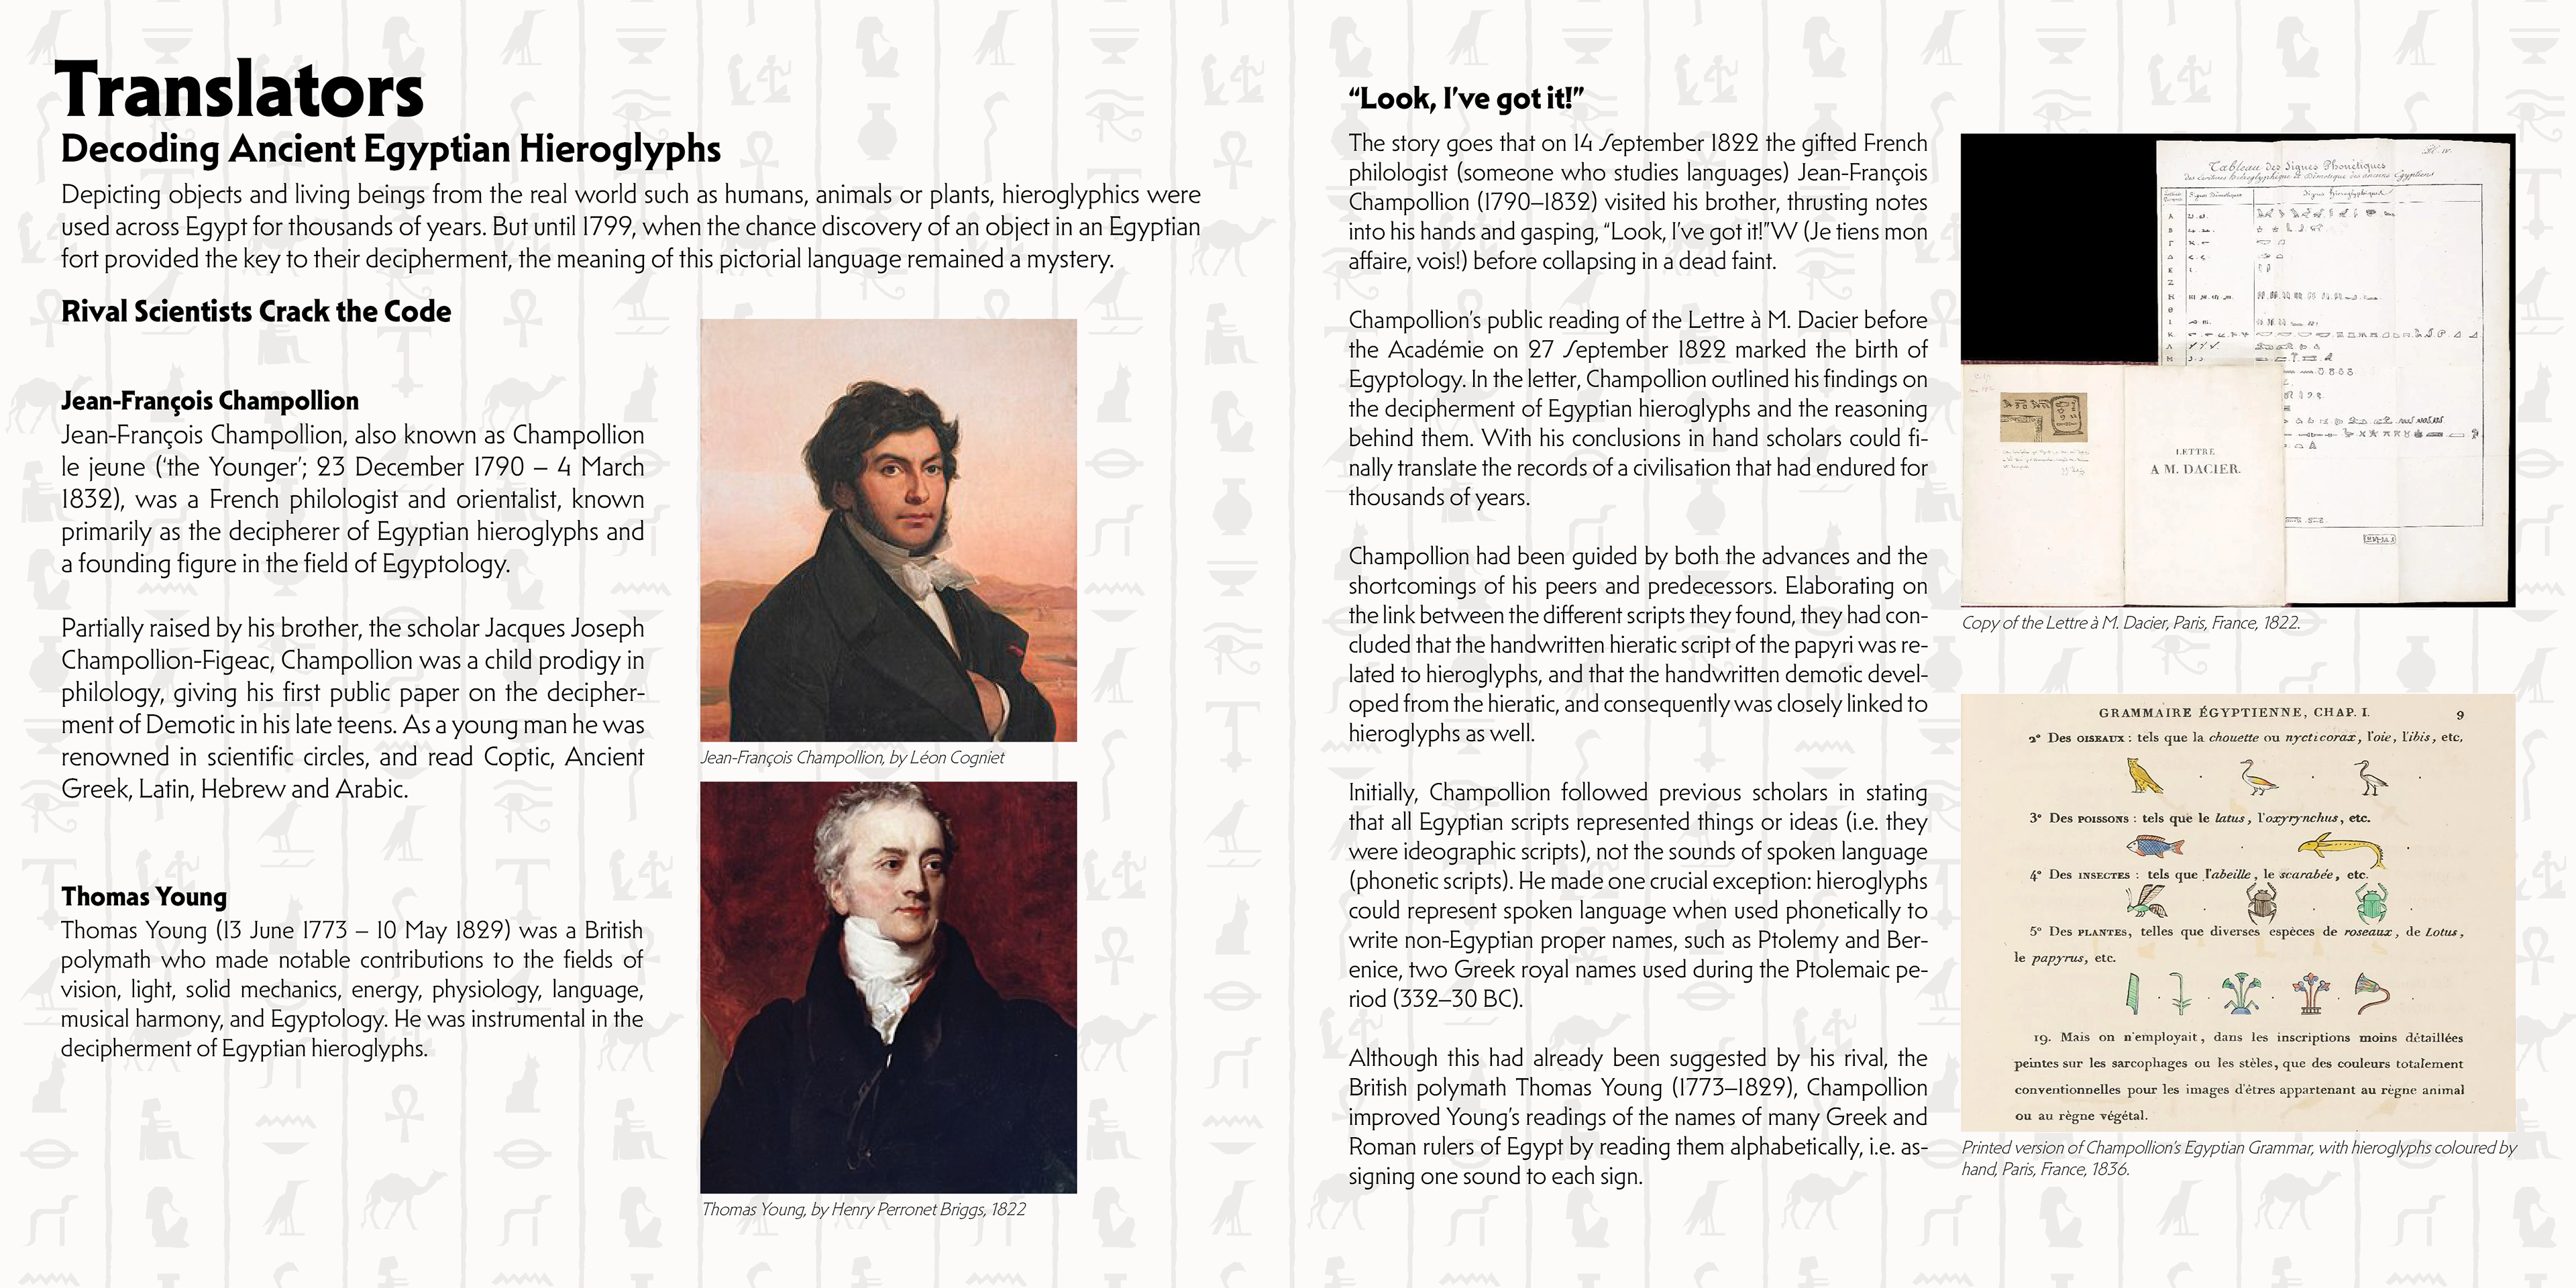 Translators
Decoding Ancient Egyptian Hieroglyphs
Depicting objects and living beings from the real world such as humans, animals or plants, hieroglyphics were
used across Egypt for thousands of years. But until 1799, when the chance discovery of an object in an Egyptian
fort provided the key to their decipherment, the meaning of this pictorial language remained a mystery.
Rival Scientists Crack the Code
Jean-François Champollion
Jean-François Champollion, also known as Champollion
le jeune (‘the Younger’; 23 December 1790 – 4 March
1832), was a French philologist and orientalist, known
primarily as the decipherer of Egyptian hieroglyphs and
a founding figure in the field of Egyptology.
Partially raised by his brother, the scholar Jacques Joseph
Champollion-Figeac, Champollion was a child prodigy in
philology, giving his first public paper on the decipher-
ment of Demotic in his late teens. As a young man he was
renowned in scientific circles, and read Coptic, Ancient
Greek, Latin, Hebrew and Arabic.
Thomas Young
Thomas Young (13 June 1773 – 10 May 1829) was a British
polymath who made notable contributions to the fields of
vision, light, solid mechanics, energy, physiology, language,
musical harmony, and Egyptology. He was instrumental in the
decipherment of Egyptian hieroglyphs.
Jean-François Champollion, by Léon Cogniet
Thomas Young, by Henry Perronet Briggs, 1822
“Look, I’ve got it!”
The story goes that on 14 September 1822 the gifted French
philologist (someone who studies languages) Jean-François
Champollion (1790–1832) visited his brother, thrusting notes
into his hands and gasping, “Look, I’ve got it!”W (Je tiens mon
affaire, vois!) before collapsing in a dead faint.
Champollion’s public reading of the Lettre à M. Dacier before
the Académie on 27 September 1822 marked the birth of
Egyptology. In the letter, Champollion outlined his findings on
the decipherment of Egyptian hieroglyphs and the reasoning
behind them. With his conclusions in hand scholars could fi-
nally translate the records of a civilisation that had endured for
thousands of years.
Champollion had been guided by both the advances and the
shortcomings of his peers and predecessors. Elaborating on
the link between the different scripts they found, they had con-
cluded that the handwritten hieratic script of the papyri was re-
lated to hieroglyphs, and that the handwritten demotic devel-
oped from the hieratic, and consequently was closely linked to
hieroglyphs as well.
Initially, Champollion followed previous scholars in stating
that all Egyptian scripts represented things or ideas (i.e. they
were ideographic scripts), not the sounds of spoken language
(phonetic scripts). He made one crucial exception: hieroglyphs
could represent spoken language when used phonetically to
write non-Egyptian proper names, such as Ptolemy and Ber-
enice, two Greek royal names used during the Ptolemaic pe-
riod (332–30 BC).
Although this had already been suggested by his rival, the
British polymath Thomas Young (1773–1829), Champollion
improved Young’s readings of the names of many Greek and
Roman rulers of Egypt by reading them alphabetically, i.e. as-
signing one sound to each sign.
Tableau des Signes Phonétiques
des écritures hiéroglyphique et Démotique des anciens Égyptiens
LETTRE
A M. DACIER.
Copy of the Lettre à M. Dacier, Paris, France, 1822.
GRAMMAIRE ÉGYPTIENNE, CHAP. I. 9
2° Des OISEAUX : tels que la chouette ou nycticorax, l'oie, l'ibis, etc.
3° Des POISSONS : tels que le latus, l'oxyrynchus, etc.
4° Des INSECTES : tels que l'abeille, le scarabée, etc.
5° Des PLANTES, telles que diverses espèces de roseaux, de Lotus,
le papyrus, etc.
19. Mais on n'employait, dans les inscriptions moins détaillées
peintes sur les sarcophages ou les stèles, que des couleurs totalement
conventionnelles pour les images d'êtres appartenant au règne animal
ou au règne végétal.
Printed version of Champollion’s Egyptian Grammar, with hieroglyphs coloured by
hand, Paris, France, 1836.